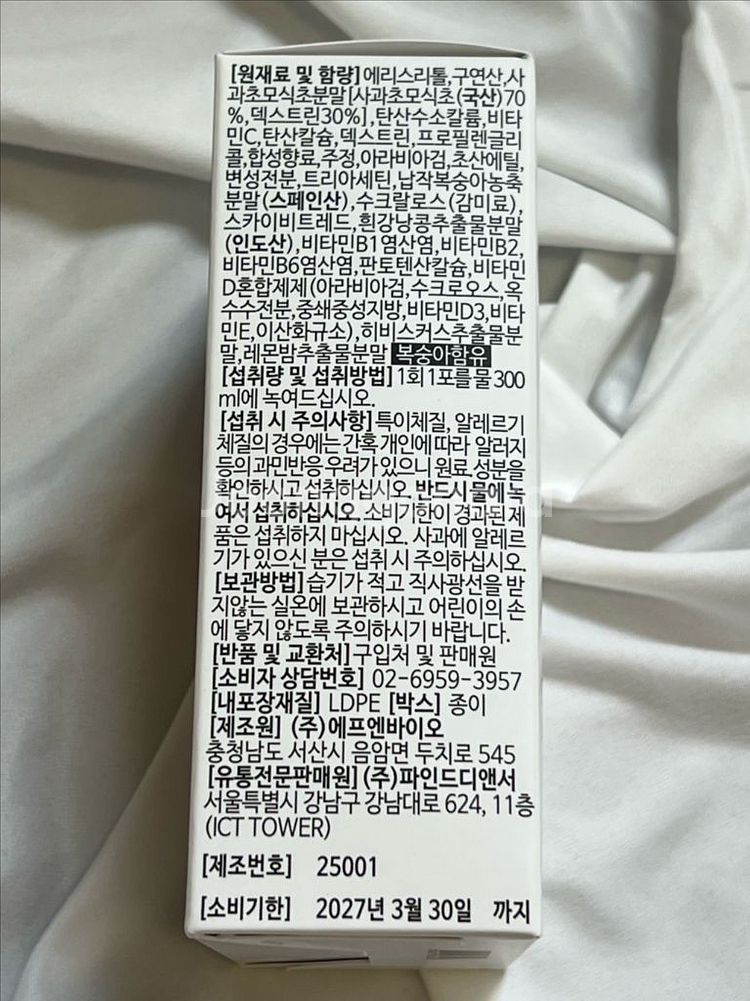 [원재료 및 함량]에리스리톨,구연산,사
과초모식초분말[사과초모식초(국산)70
%,덱스트린30%],탄산수소칼륨,비타
민C,탄산칼슘,덱스트린,프로필렌글리
콜,합성향료,주정,아라비아검,초산에틸,
변성전분,트리아세틴,납작복숭아농축
분말(스페인산),수크랄로스(감미료),
스카이비트레드,흰강낭콩추출물분말
(인도산),비타민B1염산염,비타민B2,
비타민B6염산염,판토텐산칼슘,비타민
D혼합제제(아라비아검,수크로오스,옥
수수전분,중쇄중성지방,비타민D3,비타
민E,이산화규소),히비스커스추출물분
말,레몬밤추출물분말 복숭아함유
[섭취량 및 섭취방법] 1회 1포를 물 300
ml에 녹여드십시오.
[섭취 시 주의사항] 특이체질, 알레르기
체질의 경우에는 간혹 개인에 따라 알러지
등의 과민반응 우려가 있으니 원료 성분을
확인하시고 섭취하십시오. 반드시 물에 녹
여서 섭취하십시오. 소비기한이 경과된 제
품은 섭취하지 마십시오. 사과에 알레르
기가 있으신 분은 섭취 시 주의하십시오.
[보관방법] 습기가 적고 직사광선을 받
지않는 실온에 보관하시고 어린이의 손
에 닿지 않도록 주의하시기 바랍니다.
[반품 및 교환처] 구입처 및 판매원
[소비자 상담번호] 02-6959-3957
[내포장재질] LDPE [박스] 종이
[제조원] (주)에프엔바이오
충청남도 서산시 음암면 두치로 545
[유통전문판매원] (주)파인드디앤서
서울특별시 강남구 강남대로 624, 11층
(ICT TOWER)
[제조번호] 25001
[소비기한] 2027년 3월 30일 까지